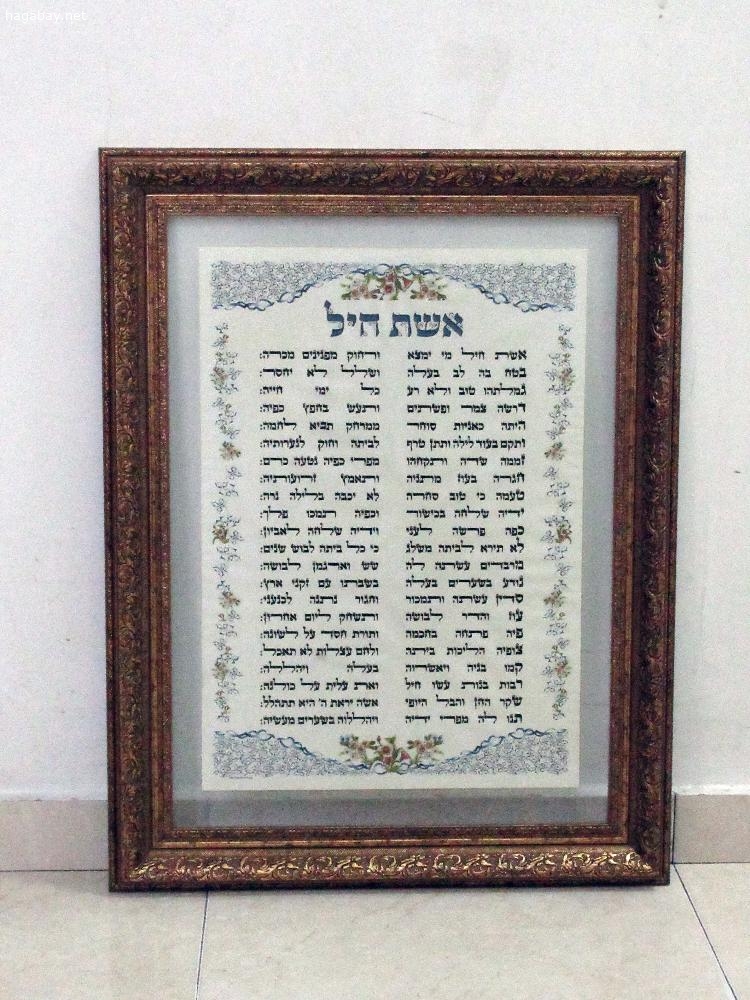 hagabay.net
אשת חיל
אשת חיל מי ימצא ורחוק מפנינים מכרה:
בטח בה לב בעלה ושלל לא יחסר:
גמלתהו טוב ולא רע כל ימי חייה:
דרשה צמר ופשתים ותעש בחפץ כפיה:
היתה כאניות סוחר ממרחק תביא לחמה:
ותקם בעוד לילה ותתן טרף לביתה וחוק לנערותיה:
זממה שדה ותקחהו מפרי כפיה נטעה כרם:
חגרה בעוז מתניה ותאמץ זרועותיה:
טעמה כי טוב סחרה לא יכבה בלילה נרה:
ידיה שלחה בכישור וכפיה תמכו פלך:
כפה פרשה לעני וידיה שלחה לאביון:
לא תירא לביתה משלג כי כל ביתה לבוש שנים:
מרבדים עשתה לה שש וארגמן לבושה:
נודע בשערים בעלה בשבתו עם זקני ארץ:
סדין עשתה ותמכור וחגור נתנה לכנעני:
עוז והדר לבושה ותשחק ליום אחרון:
פיה פתחה בחכמה ותורת חסד על לשונה:
צופיה הליכות ביתה ולחם עצלות לא תאכל:
קמו בניה ויאשרוה בעלה ויהללה:
רבות בנות עשו חיל ואת עלית על כולנה:
שקר החן והבל היופי אשה יראת ה' היא תתהלל:
תנו לה מפרי ידיה ויהללוה בשערים מעשיה: